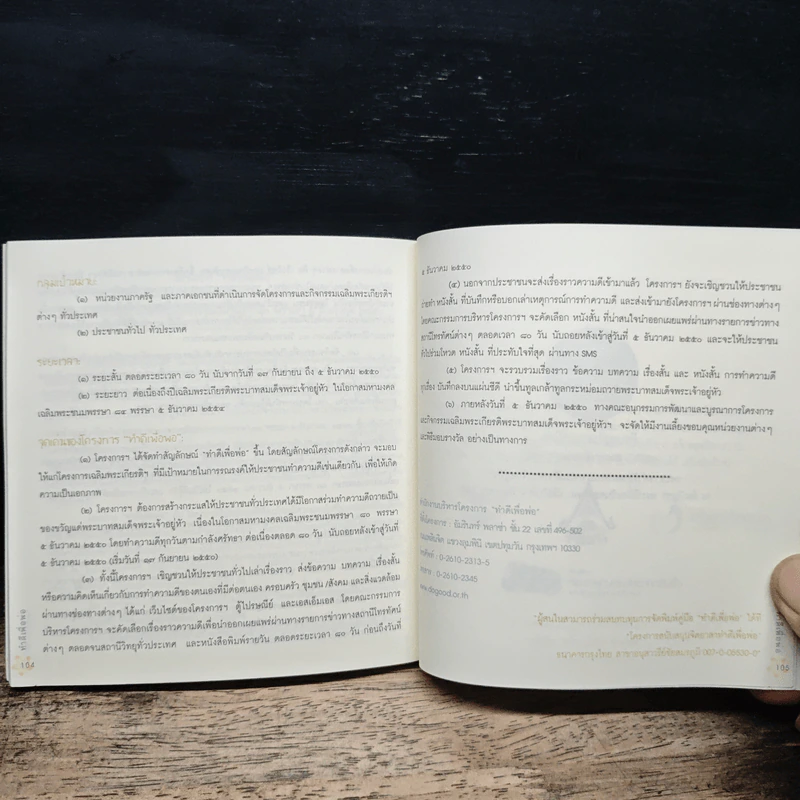 กลุ่มเป้าหมาย
(๑) หน่วยงานภาครัฐ และภาคเอกชนที่ดำเนินการจัดโครงการและกิจกรรมเฉลิมพระเกียรติฯ
ต่างๆ ทั่วประเทศ
(๒) ประชาชนทั่วไป ทั่วประเทศ
ระยะเวลา
(๑) ระยะสั้น ตลอดระยะเวลา ๘๐ วัน นับจากวันที่ ๑๗ กันยายน ถึง ๕ ธันวาคม ๒๕๕๐
(๒) ระยะยาว ต่อเนื่องถึงปีเฉลิมพระเกียรติพระบาทสมเด็จพระเจ้าอยู่หัว ในโอกาสมหามงคล
เฉลิมพระชนมพรรษา ๘๔ พรรษา ๕ ธันวาคม ๒๕๕๔
จุดเด่นของโครงการ "ทำดีเพื่อพ่อ"
(๑) โครงการฯ ได้จัดทำสัญลักษณ์ "ทำดีเพื่อพ่อ" ขึ้น โดยสัญลักษณ์โครงการดังกล่าว จะมอบ
ให้แก่โครงการเฉลิมพระเกียรติฯ ที่มีเป้าหมายในการรณรงค์ให้ประชาชนทำความดีเช่นเดียวกัน เพื่อให้เกิด
ความเป็นเอกภาพ
(๒) โครงการฯ ต้องการสร้างกระแสให้ประชาชนทั่วประเทศได้มีโอกาสร่วมทำความดีถวายเป็น
ของขวัญแด่พระบาทสมเด็จพระเจ้าอยู่หัว เนื่องในโอกาสมหามงคลเฉลิมพระชนมพรรษา ๘๐ พรรษา
๕ ธันวาคม ๒๕๕๐ โดยทำความดีทุกวันตามกำลังศรัทธา ต่อเนื่องตลอด ๘๐ วัน นับถอยหลังเข้าสู่วันที่
๕ ธันวาคม ๒๕๕๐ (เริ่มวันที่ ๑๗ กันยายน ๒๕๕๐)
(๓) ทั้งนี้โครงการฯ เชิญชวนให้ประชาชนทั่วไปเล่าเรื่องราว ส่งข้อความ บทความ เรื่องสั้น
หรือความคิดเห็นเกี่ยวกับการทำความดีของตนเองที่มีต่อตนเอง ครอบครัว ชุมชน /สังคม และสิ่งแวดล้อม
ผ่านทางช่องทางต่างๆ ได้แก่ เว็บไซต์ของโครงการฯ ตู้ไปรษณีย์ และเอสเอ็มเอส โดยคณะกรรมการ
บริหารโครงการฯ จะคัดเลือกเรื่องราวความดีเพื่อนำออกเผยแพร่ผ่านทางรายการข่าวทางสถานีโทรทัศน์
ต่างๆ ตลอดจนสถานีวิทยุทั่วประเทศ และหนังสือพิมพ์รายวัน ตลอดระยะเวลา ๘๐ วัน ก่อนถึงวันที่
ทำดีเพื่อพ่อ
104
๕ ธันวาคม ๒๕๕๐
(๔) นอกจากประชาชนจะส่งเรื่องราวความดีเข้ามาแล้ว โครงการฯ ยังจะเชิญชวนให้ประชาชน
ทำ หนังสั้น ที่บันทึกหรือบอกเล่าเหตุการณ์การทำความดี และส่งเข้ามายังโครงการฯ ผ่านช่องทางต่างๆ
โดยคณะกรรมการบริหารโครงการฯ จะคัดเลือก หนังสั้น ที่น่าสนใจนำออกเผยแพร่ผ่านทางรายการข่าวทาง
สถานีโทรทัศน์ต่างๆ ตลอดเวลา ๘๐ วัน นับถอยหลังเข้าสู่วันที่ ๕ ธันวาคม ๒๕๕๐ และจะให้ประชาชน
ทั่วไปร่วมโหวต หนังสั้น ที่ประทับใจที่สุด ผ่านทาง SMS
(๕) โครงการฯ จะรวบรวมเรื่องราว ข้อความ บทความ เรื่องสั้น และ หนังสั้น การทำความดี
ทุกเรื่อง บันทึกลงบนแผ่นซีดี นำขึ้นทูลเกล้าทูลกระหม่อมถวายพระบาทสมเด็จพระเจ้าอยู่หัว
(๖) ภายหลังวันที่ ๕ ธันวาคม ๒๕๕๐ ทางคณะอนุกรรมการพัฒนาและบูรณาการโครงการ
และกิจกรรมเฉลิมพระเกียรติพระบาทสมเด็จพระเจ้าอยู่หัวฯ จะจัดให้มีงานเลี้ยงขอบคุณหน่วยงานต่างๆ
และพิธีมอบรางวัล อย่างเป็นทางการ
สำนักงานบริหารโครงการ "ทำดีเพื่อพ่อ"
ที่ตั้งโครงการ : อัมรินทร์ พลาซ่า ชั้น 22 เลขที่ 496-502
ถนนเพลินจิต แขวงลุมพินี เขตปทุมวัน กรุงเทพฯ 10330
โทรศัพท์ : 0-2610-2313-5
โทรสาร : 0-2610-2345
www.dogood.or.th
"ผู้สนใจสามารถร่วมสมทบทุนการจัดพิมพ์คู่มือ "ทำดีเพื่อพ่อ" ได้ที่
"โครงการสนับสนุนจิตอาสาทำดีเพื่อพ่อ"
105